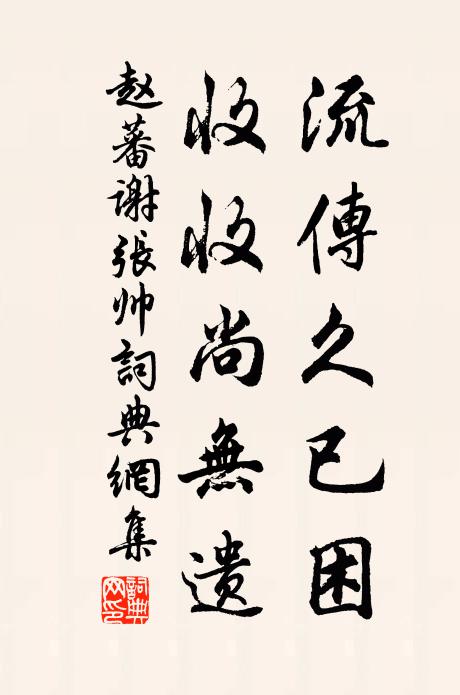 流傳久已困
收收尚無遺
赵蕃谢張帅詞典網集
詞典网印